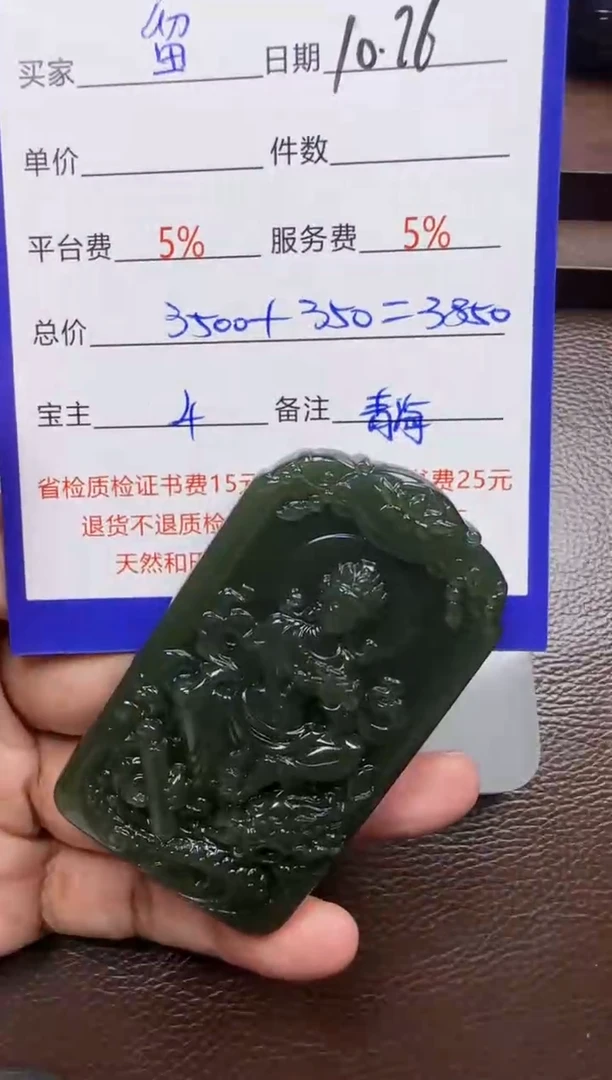 买家 留 日期 10.26
单价 件数
平台费 5% 服务费 5%
总价 3500+350=3850
宝主 4 备注 青海
省检质检证书费15元 费25元
退货不退质检
天然和田